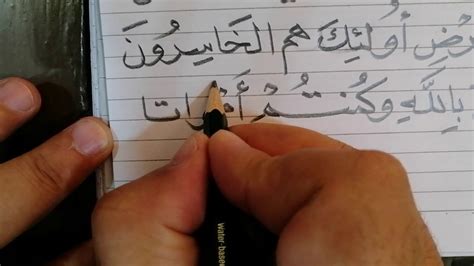 رْضِ أُولَئِكَ هُمُ الْخَاسِرُونَ
بِاللَّهِ وَكُنْتُمْ أَمْوَاتا
water-based